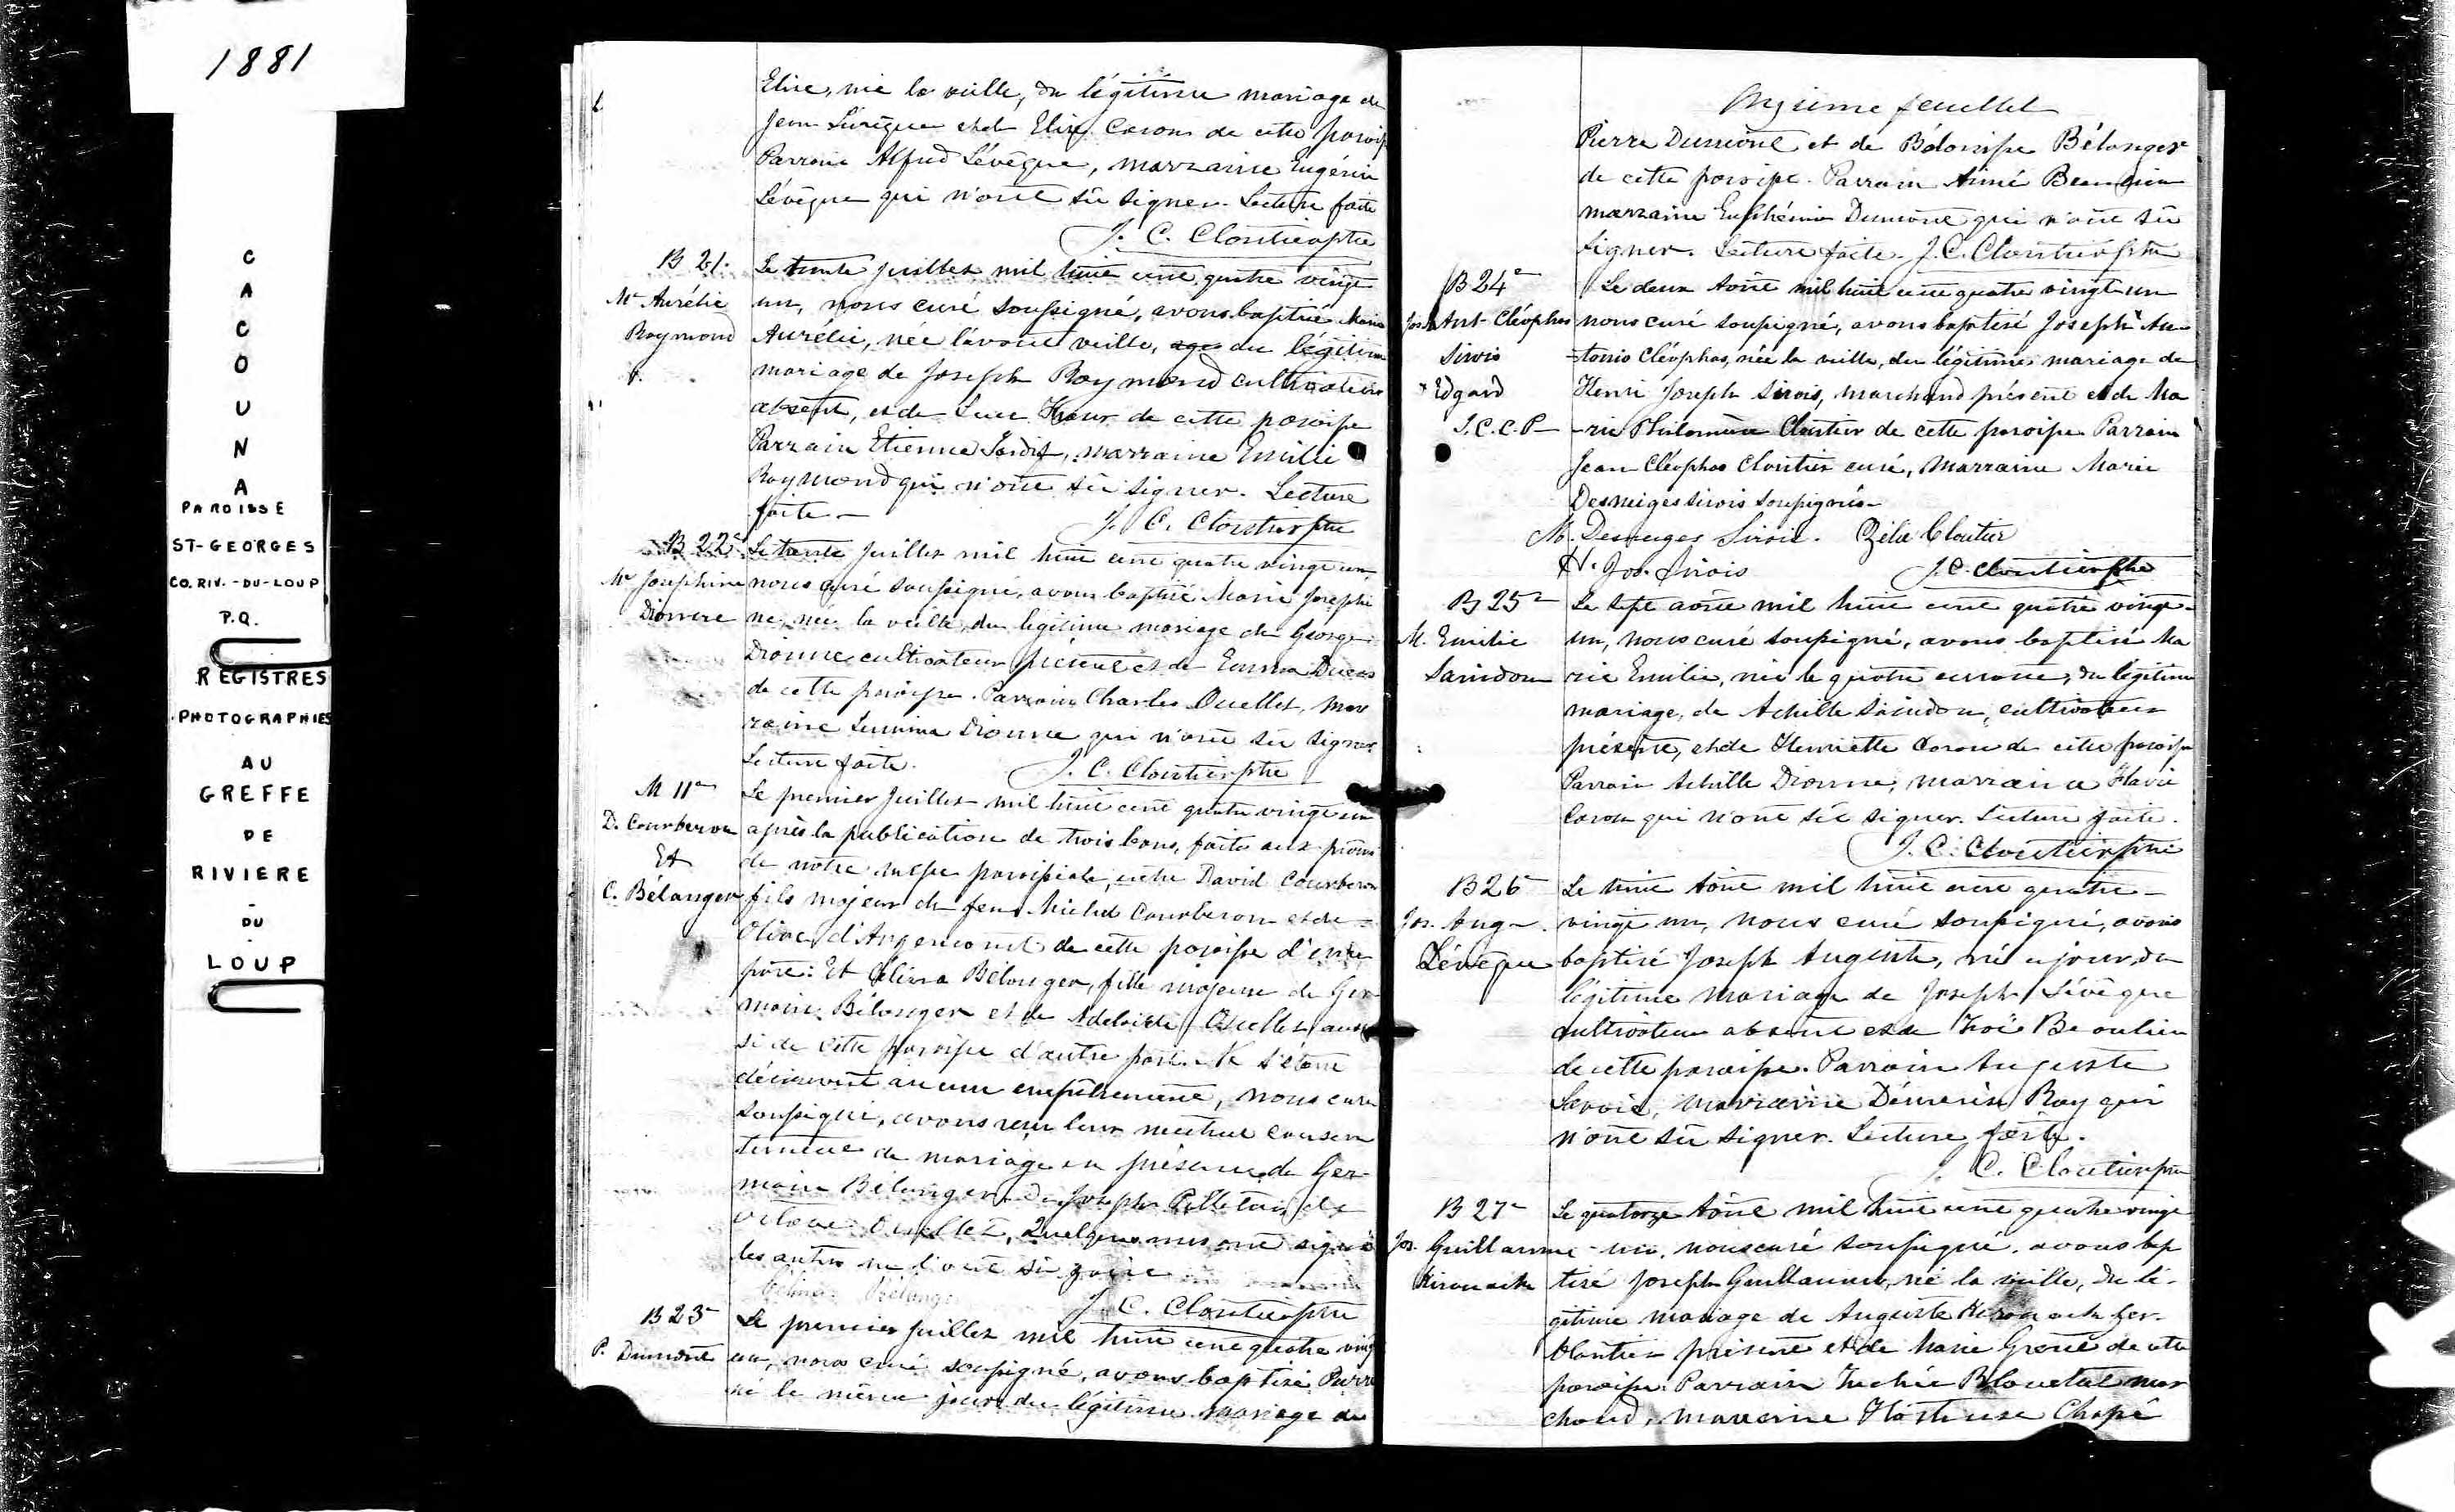 1881
C
A
C
O
U
N
A
PAROISSE
ST-GEORGES
CO. RIV.-DU-LOUP
P.Q.
REGISTRES
PHOTOGRAPHIES
AU
GREFFE
DE
RIVIERE
-
DU
-
LOUP
Elise, née la veille, du légitime mariage de
Jean Lévêque et de Elise Caron de cette paroisse
Parrain Alfred Lévêque, marraine Eugénie
Lévêque qui n'ont su signer. Lecture faite
J. C. Cloutier ptre
B 21.
Me Aurélie
Raymond
Le trente juillet mil huit cent quatre vingt
un, nous curé soussigné, avons baptisé Marie
Aurélie, née l'avant veille, du légitime
mariage de Joseph Raymond cultivateur
absent, et de Luce de cette paroisse
Parrain Etienne Tardif, marraine Emilie
Raymond qui n'ont su signer. Lecture
faite—
J. C. Cloutier ptre
B 22e
Me Josephine
Dionne
Le trente juillet mil huit cent quatre vingt un,
nous curé soussigné, avons baptisé Marie Josephi
ne, née la veille, du légitime mariage de George
Dionne cultivateur présent et de Emma
de cette paroisse. Parrain Charles Ouellet, mar
raine Dionne qui n'ont su signer
Lecture faite.
J. C. Cloutier ptre
M 11e
D. Courberon
Et
C. Bélanger
Le premier juillet mil huit cent quatre vingt un
après la publication de trois bans, faite aux prônes
de notre messe paroissiale, entre David Courberon
fils majeur de feu Michel Courberon et de
Olive d'Argencourt de cette paroisse d'une
part: Et Célina Bélanger, fille majeure de Ger
main Bélanger et de Adelaide Ouellet aus
si de cette paroisse d'autre part. Ne s'étant
découvert aucun empêchement, nous curé
soussigné, avons reçu leur mutuel consen
tement de mariage en présence de Ger-
main Bélanger de Joseph Pelletier de
Ouellet, Quelques uns ont signé
les autres ne l'ont su faire
Célina Bélanger
J. C. Cloutier ptre
B 23e
P. Dumont
Le premier juillet mil huit cent quatre vingt
un, nous curé soussigné, avons baptisé Pierre
né le même jour du légitime mariage de
Onzième feuillet
Pierre Dumont et de Bélanger
de cette paroisse. Parrain Aimé Beaulieu
marraine Euphémie Dumont qui n'ont su
signer. Lecture faite. J. C. Cloutier ptre
B 24e
Jos. Ant Cléophas
Sirois
* Edgard
J.C.C.P—
Le deux Août mil huit cent quatre vingt un
nous curé soussigné, avons baptisé Joseph * An
-tonio Cléophas, née la veille, du légitime mariage de
Henri Joseph Sirois, marchand présent et de Ma
-rie Philomène Cloutier de cette paroisse Parrain
Jean Cléophas Cloutier curé, Marraine Marie
Desneiges Sirois soussignés—
M. Desneiges Sirois. Zélie Cloutier
H. Jos. Sirois
J.C. Cloutier ptre
B 25e
M. Emilie
Saindon
Le sept août mil huit cent quatre vingt
un, nous curé soussigné, avons baptisé Ma
rie Emilie, née le quatre courant, du légitime
mariage, de Achille Saindon, cultivateur
présent, et de Henriette Caron de cette paroisse
Parrain Achille Dionne, marraine Flavie
Caron qui n'ont su signer. Lecture faite.
J. C. Cloutier ptre
B 26e
Jos. Aug—
Lévêque
Le huit Août mil huit cent quatre-
vingt un, nous curé soussigné, avons
baptisé Joseph Auguste, né ce jour, du
légitime mariage de Joseph Lévêque
cultivateur absent et de Zoë Beaulieu
de cette paroisse. Parrain Auguste
Savoie, marraine Démerise Roy qui
n'ont su signer. Lecture faite.
J. C. Cloutier ptre
B 27e
Jos. Guillaume
Kirouack
Le quatorze Août mil huit cent quatre vingt
-un, nous curé soussigné, avons bap
tisé Joseph Guillaume, né la veille, du lé-
gitime mariage de Auguste Kirouack fer-
blantier présent et de Marie de cette
paroisse. Parrain Blouetal mar
chand, marraine Hortense